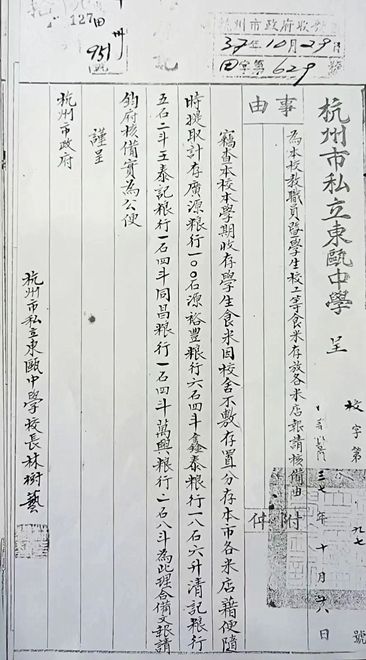 127 田 卅
951
杭州市政府收
37年10月29
字第629號
杭州市私立東甌中學 呈
校字第 九七 號
三七年十月廿八日
事由
為本校教職員暨學生校工等食米存放各米店報請核備由
附件
竊查本校本學期收存學生食米因校舍不敷存置分存本市各米店藉便隨
時提取計存廣源粮行一〇〇石源裕豐粮行六石四斗鑫泰粮行一八石六升清記粮行
五石二斗王泰記粮行一石四斗同昌粮行一石四斗萬興粮行二石八斗為此理合備文報請
鈞府核備實為公便
謹呈
杭州市政府
杭州市私立東甌中學校長林樹藝